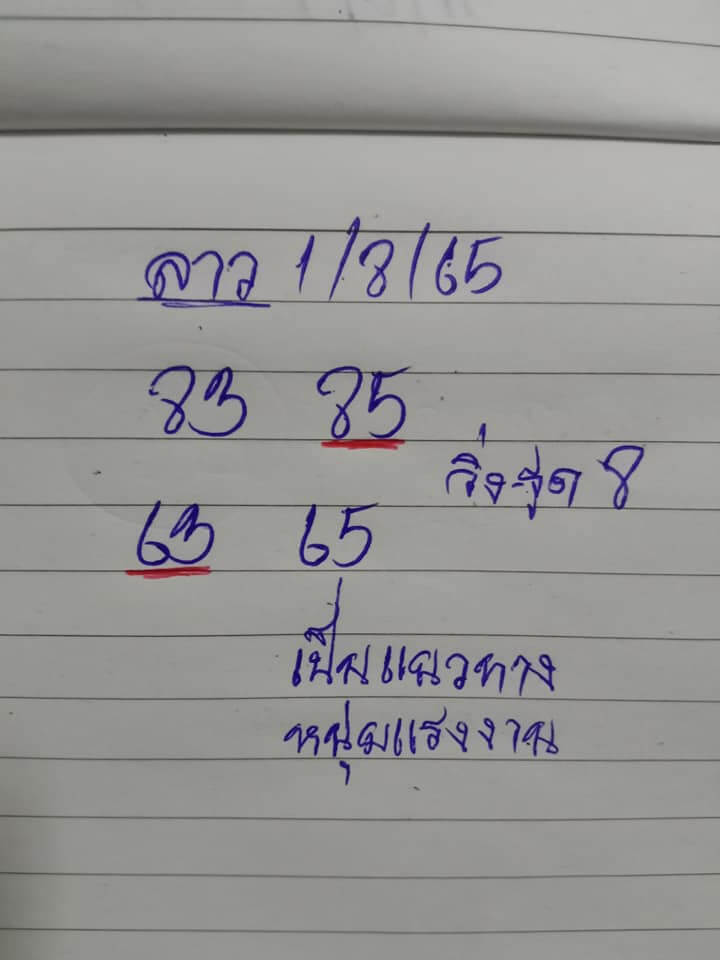 ลาว 1/8/65
83 85
วิ่งรูด 8
63 65
เป็นแนวทาง
หนุ่มแรงงาน